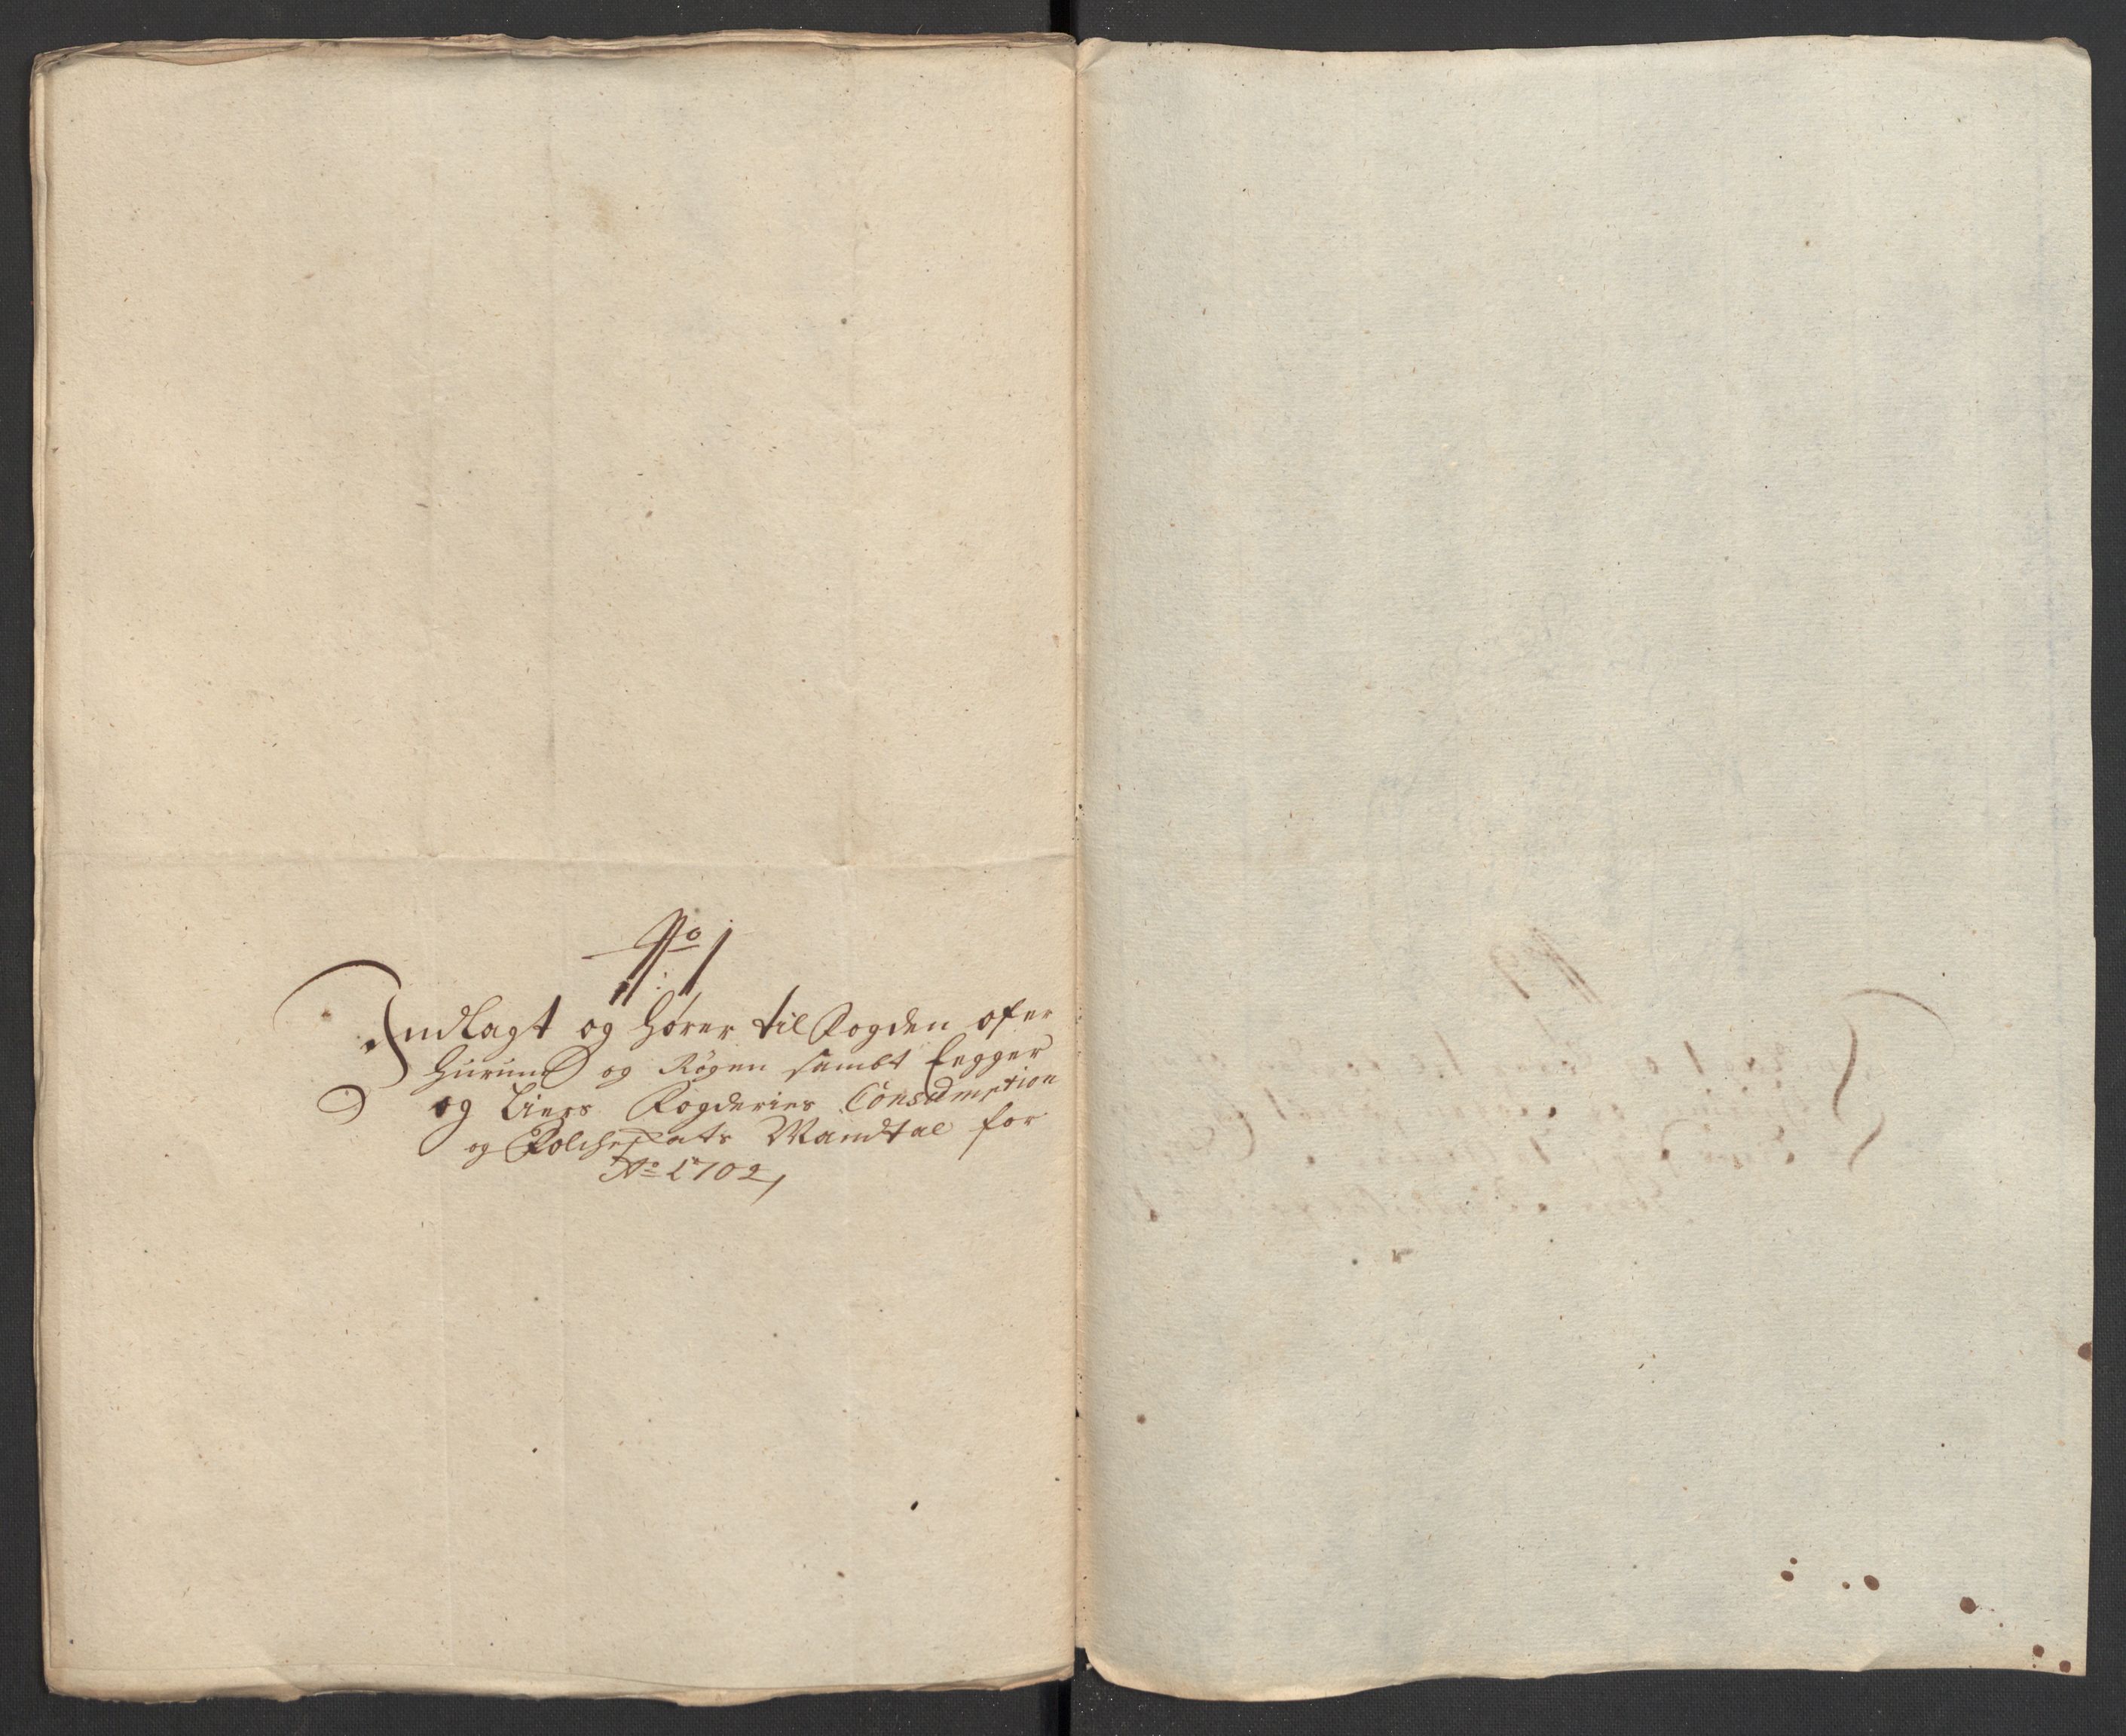 No 1
Indlagt og hører til Fogden ofver
Hurum og Røgen sambt Eegger
og Liers Fogderies Consumption
og Folcheskats Mandtal for
Ao 1702,